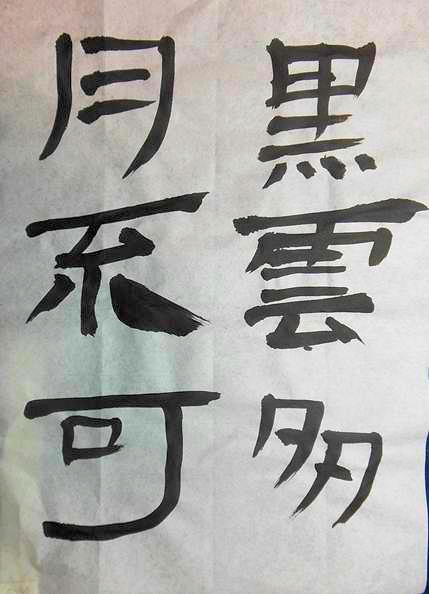 黒雲多
月不可